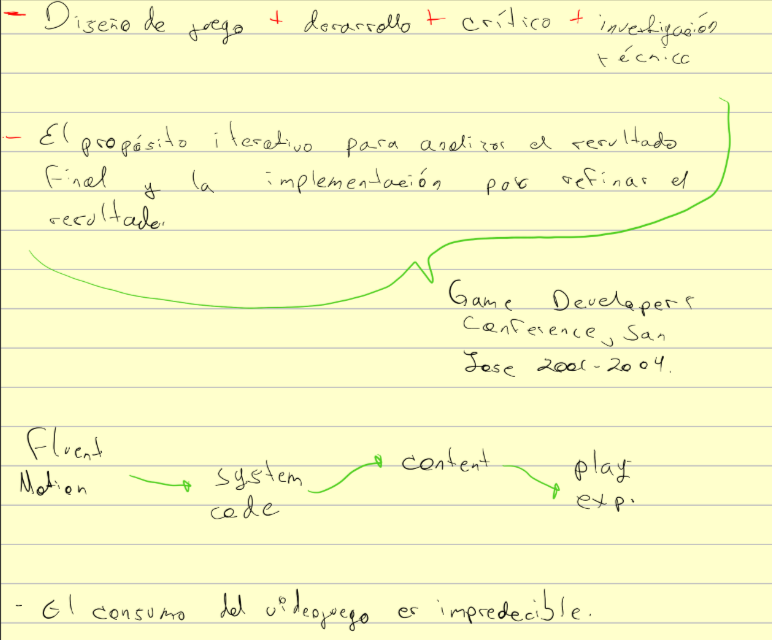 - Diseño de juego + desarrollo + crítico + investigación
técnica
- El propósito iterativo para analizar el resultado
final y la implementación por refinar el
resultado.
Game Developers
Conference, San
Jose 2001-2004.
Fluent
Motion → system
code → content → play
exp.
- El consumo del videojuego es impredecible.